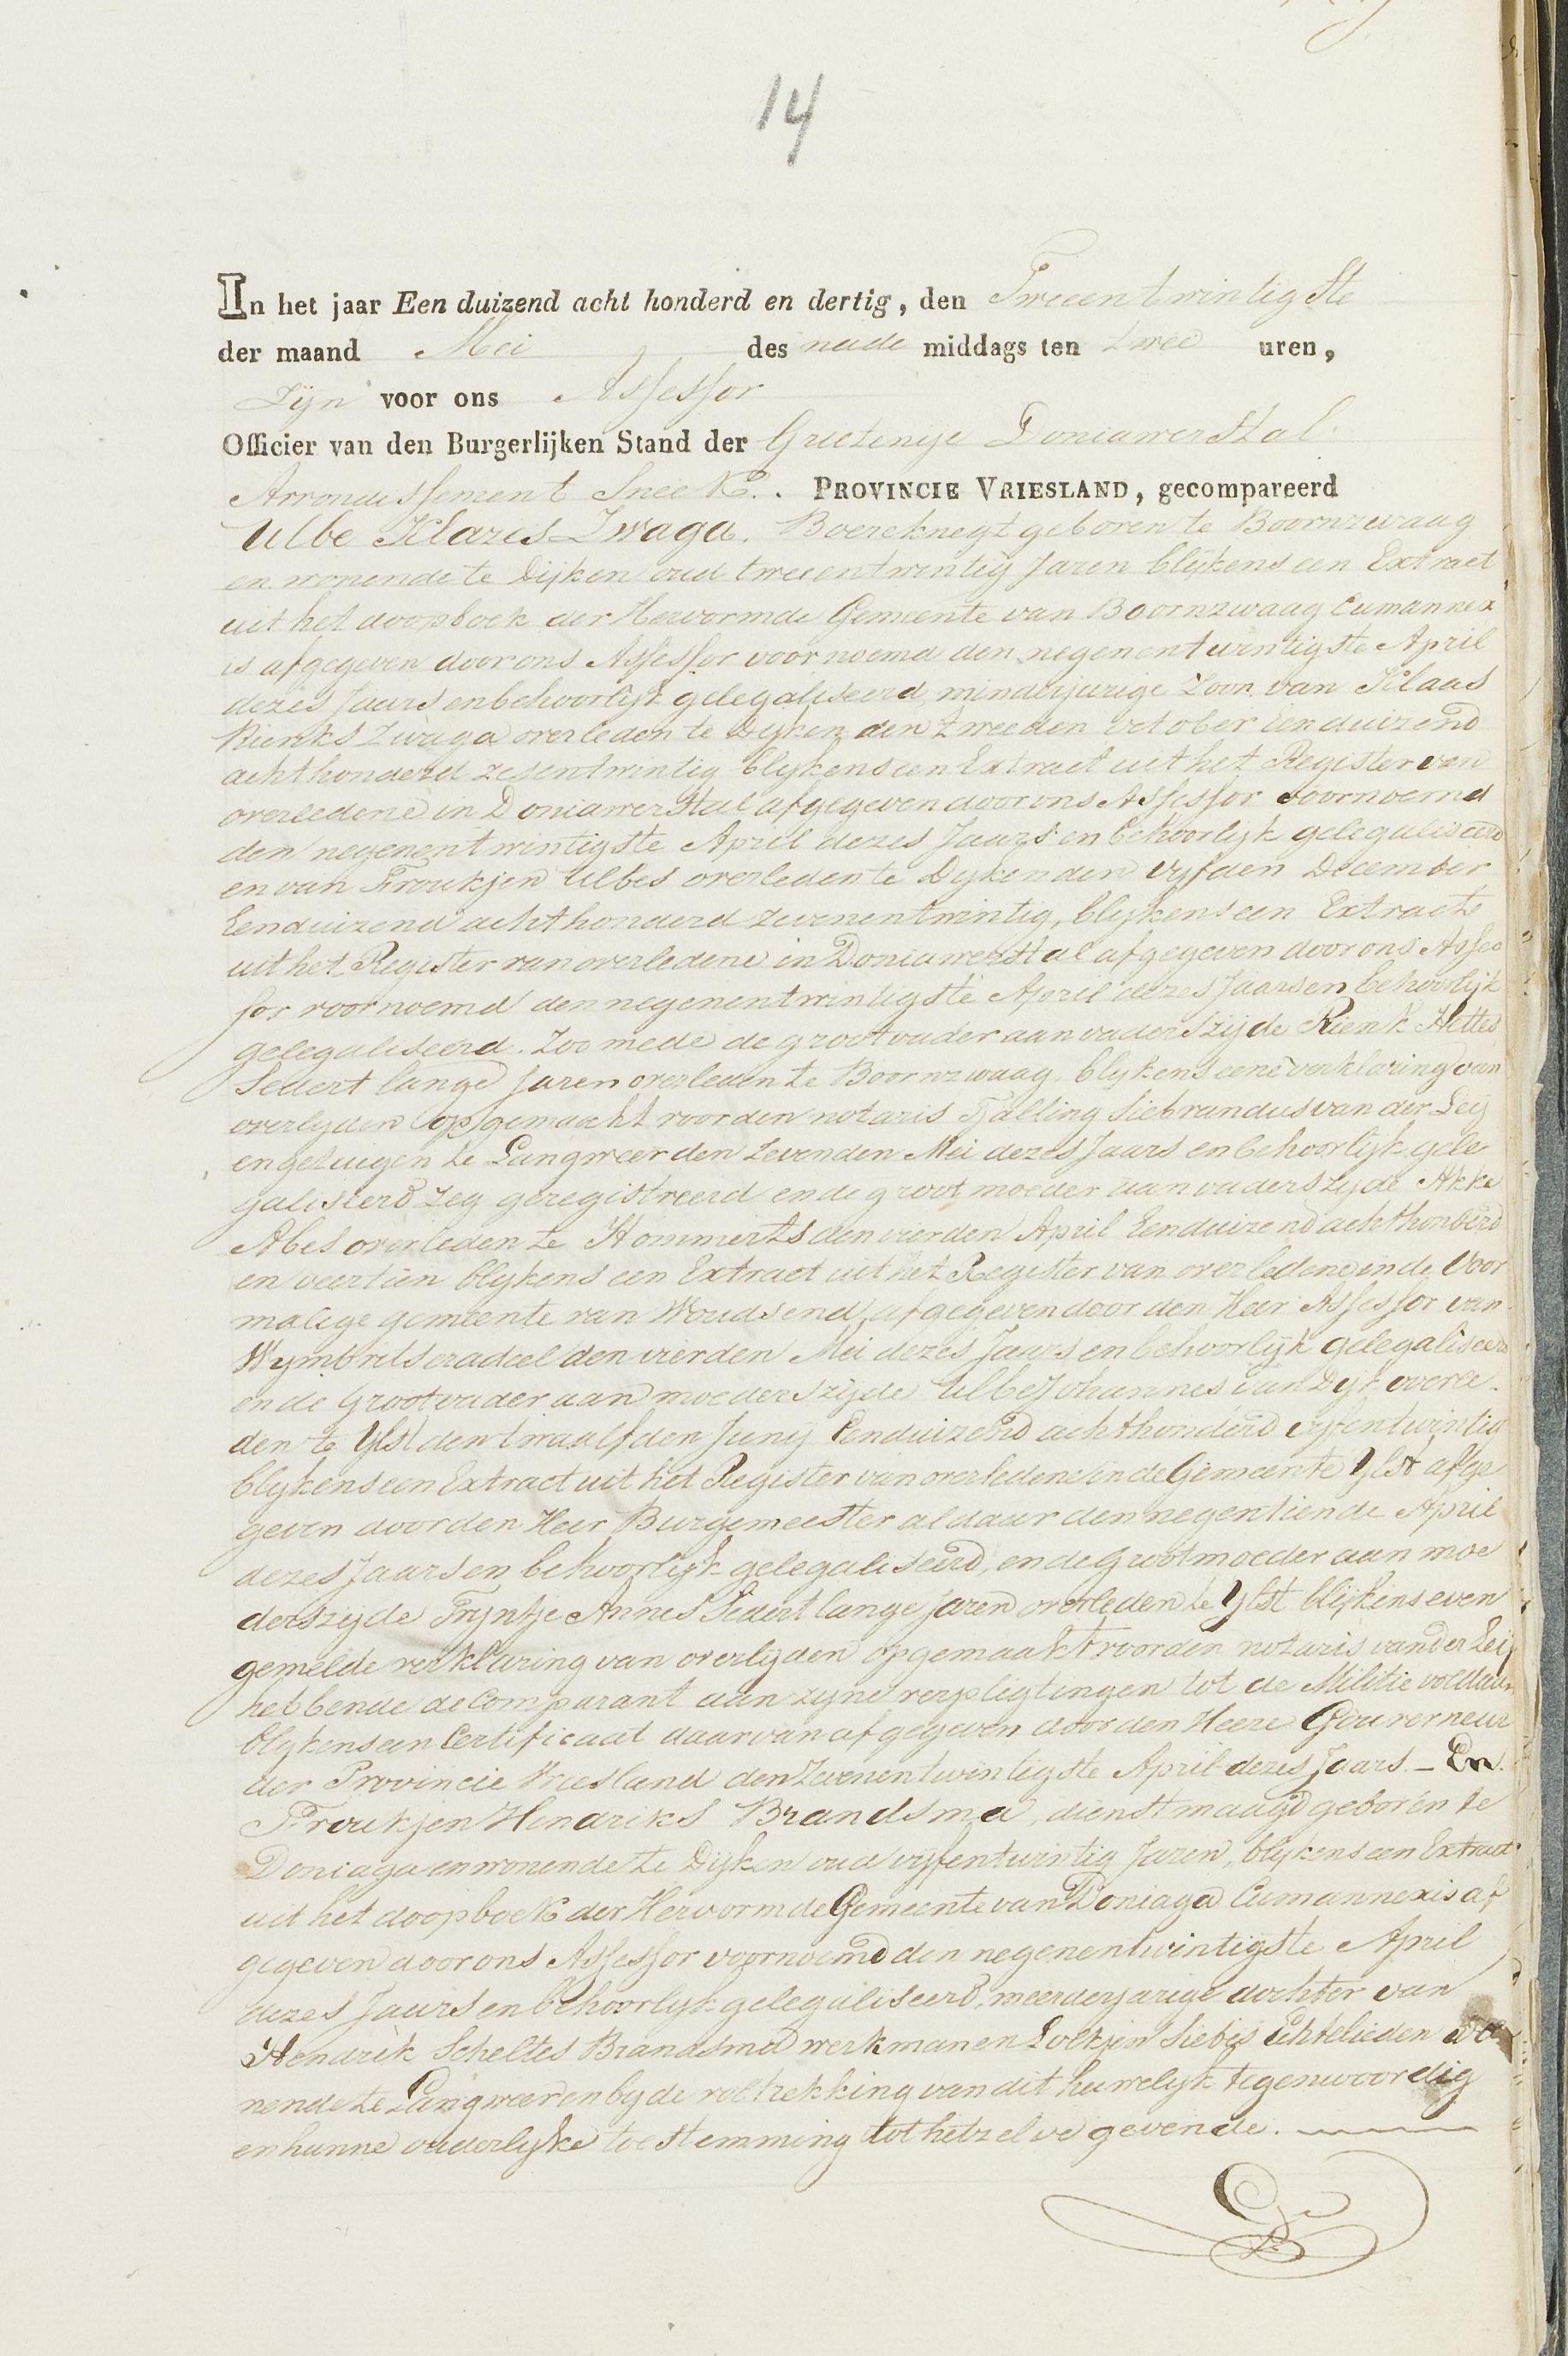 14
In het jaar Een duizend acht honderd en dertig, den Tweeentwintigste
der maand Mei des nade middags ten twee uren,
Zijn voor ons Assessor
Officier van den Burgerlijken Stand der Grietenije Doniawerstal
Arrondissement Sneek. PROVINCIE VRIESLAND, gecompareerd
Ulbe Klazes Zwaga. Boereknegt geboren te Boornzwaag
en wonende te Dijken oud tweeentwintig Jaren blijkens een Extract
uit het doopboek der Hervormde Gemeente van Boornzwaag Cumannex
is afgegeven door ons Assessor voornoemd den negenentwintigste April
dezes Jaars en behoorlijk gelegaliseerd, minderjarige Zoon van Klaas
Rienks Zwaga overleden te Dijken den tweeden october Eenduizend
achthonderd zesentwintig blykens een Extract uit het Register van
overledene in Doniawerstal afgegeven door ons Assessor voornoemd
den negenentwintigste April dezes Jaars en behoorlijk gelegaliseerd
en van Froukjen Ulbes overleden te Dyken den vyfden December
Eenduizend achthonderd zevenentwintig, blykens een Extract
uit het Register van overledene in Doniawerstal afgegeven door ons Asses
sor voornoemd den negenentwintigste April dezes Jaars en behoorlijk
gelegaliseerd. Zoo mede de grootvader aan vaderszijde Rienk Hettes
Sedert lange Jaren overleden te Boornzwaag, blykens eene verklaring van
overlyden opgemaakt voor den notaris Tjalling Siebrandus van der Leij
en getuigen te Langweer den zevenden Mei dezes Jaars en behoorlijk gele
galiseerd zeg geregistreerd en de grootmoeder aan vaderszyde Akke
Abes overleden te Hommerts den vierden April Eenduizend achthonderd
en veertien blykens een Extract uit het Register van overledene in de Voor
malige gemeente van Woudsend, afgegeven door den Heer Assessor van
Wymbritseradeel den vierden Mei dezes Jaars en behoorlijk gelegaliseerd
en de Grootvader aan moederszijde Ulbe Johannes van Dyk overle
den te Ylst den twaalfden Juny Eenduizend achthonderd vyfentwintig
blykens een Extract uit het Register van overledene in de Gemeente Ylst afge
geven door den Heer Burgemeester aldaar den negentiende April
dezes Jaars en behoorlyk gelegaliseerd, en de Grootmoeder aan moe
derszijde Tryntje Annes Sedert lange Jaren overleden te Ylst blijkens even
gemelde verklaring van overlyden opgemaakt voor den notaris van der Leij
hebbende de Comparant aan zyne verpligtingen tot de Militie voldaan
blykens een Certificaat daarvan afgegeven door den Heere Gouverneur
der Provincie Vriesland den Zevenentwintigste April dezes Jaars. – En
Froukjen Hendriks Brandsma, dienstmaagd geboren te
Doniaga en wonende te Dijken oud vijfentwintig Jaren, blykens een Extract
uit het doopboek der Hervormde Gemeente van Doniaga Cumannexis af
gegeven door ons Assessor voornoemd den negenentwintigste April
dezes Jaars en behoorlyk gelegaliseerd, meerderjarige dochter van
Hendrik Scheltes Brandsma werkman en Loltjen Siebes Echtelieden wo
nende te Langweer en by de voltrekking van dit huwelyk tegenwoordig
en hunne ouderlyke toestemming tot hetzelve gevende.